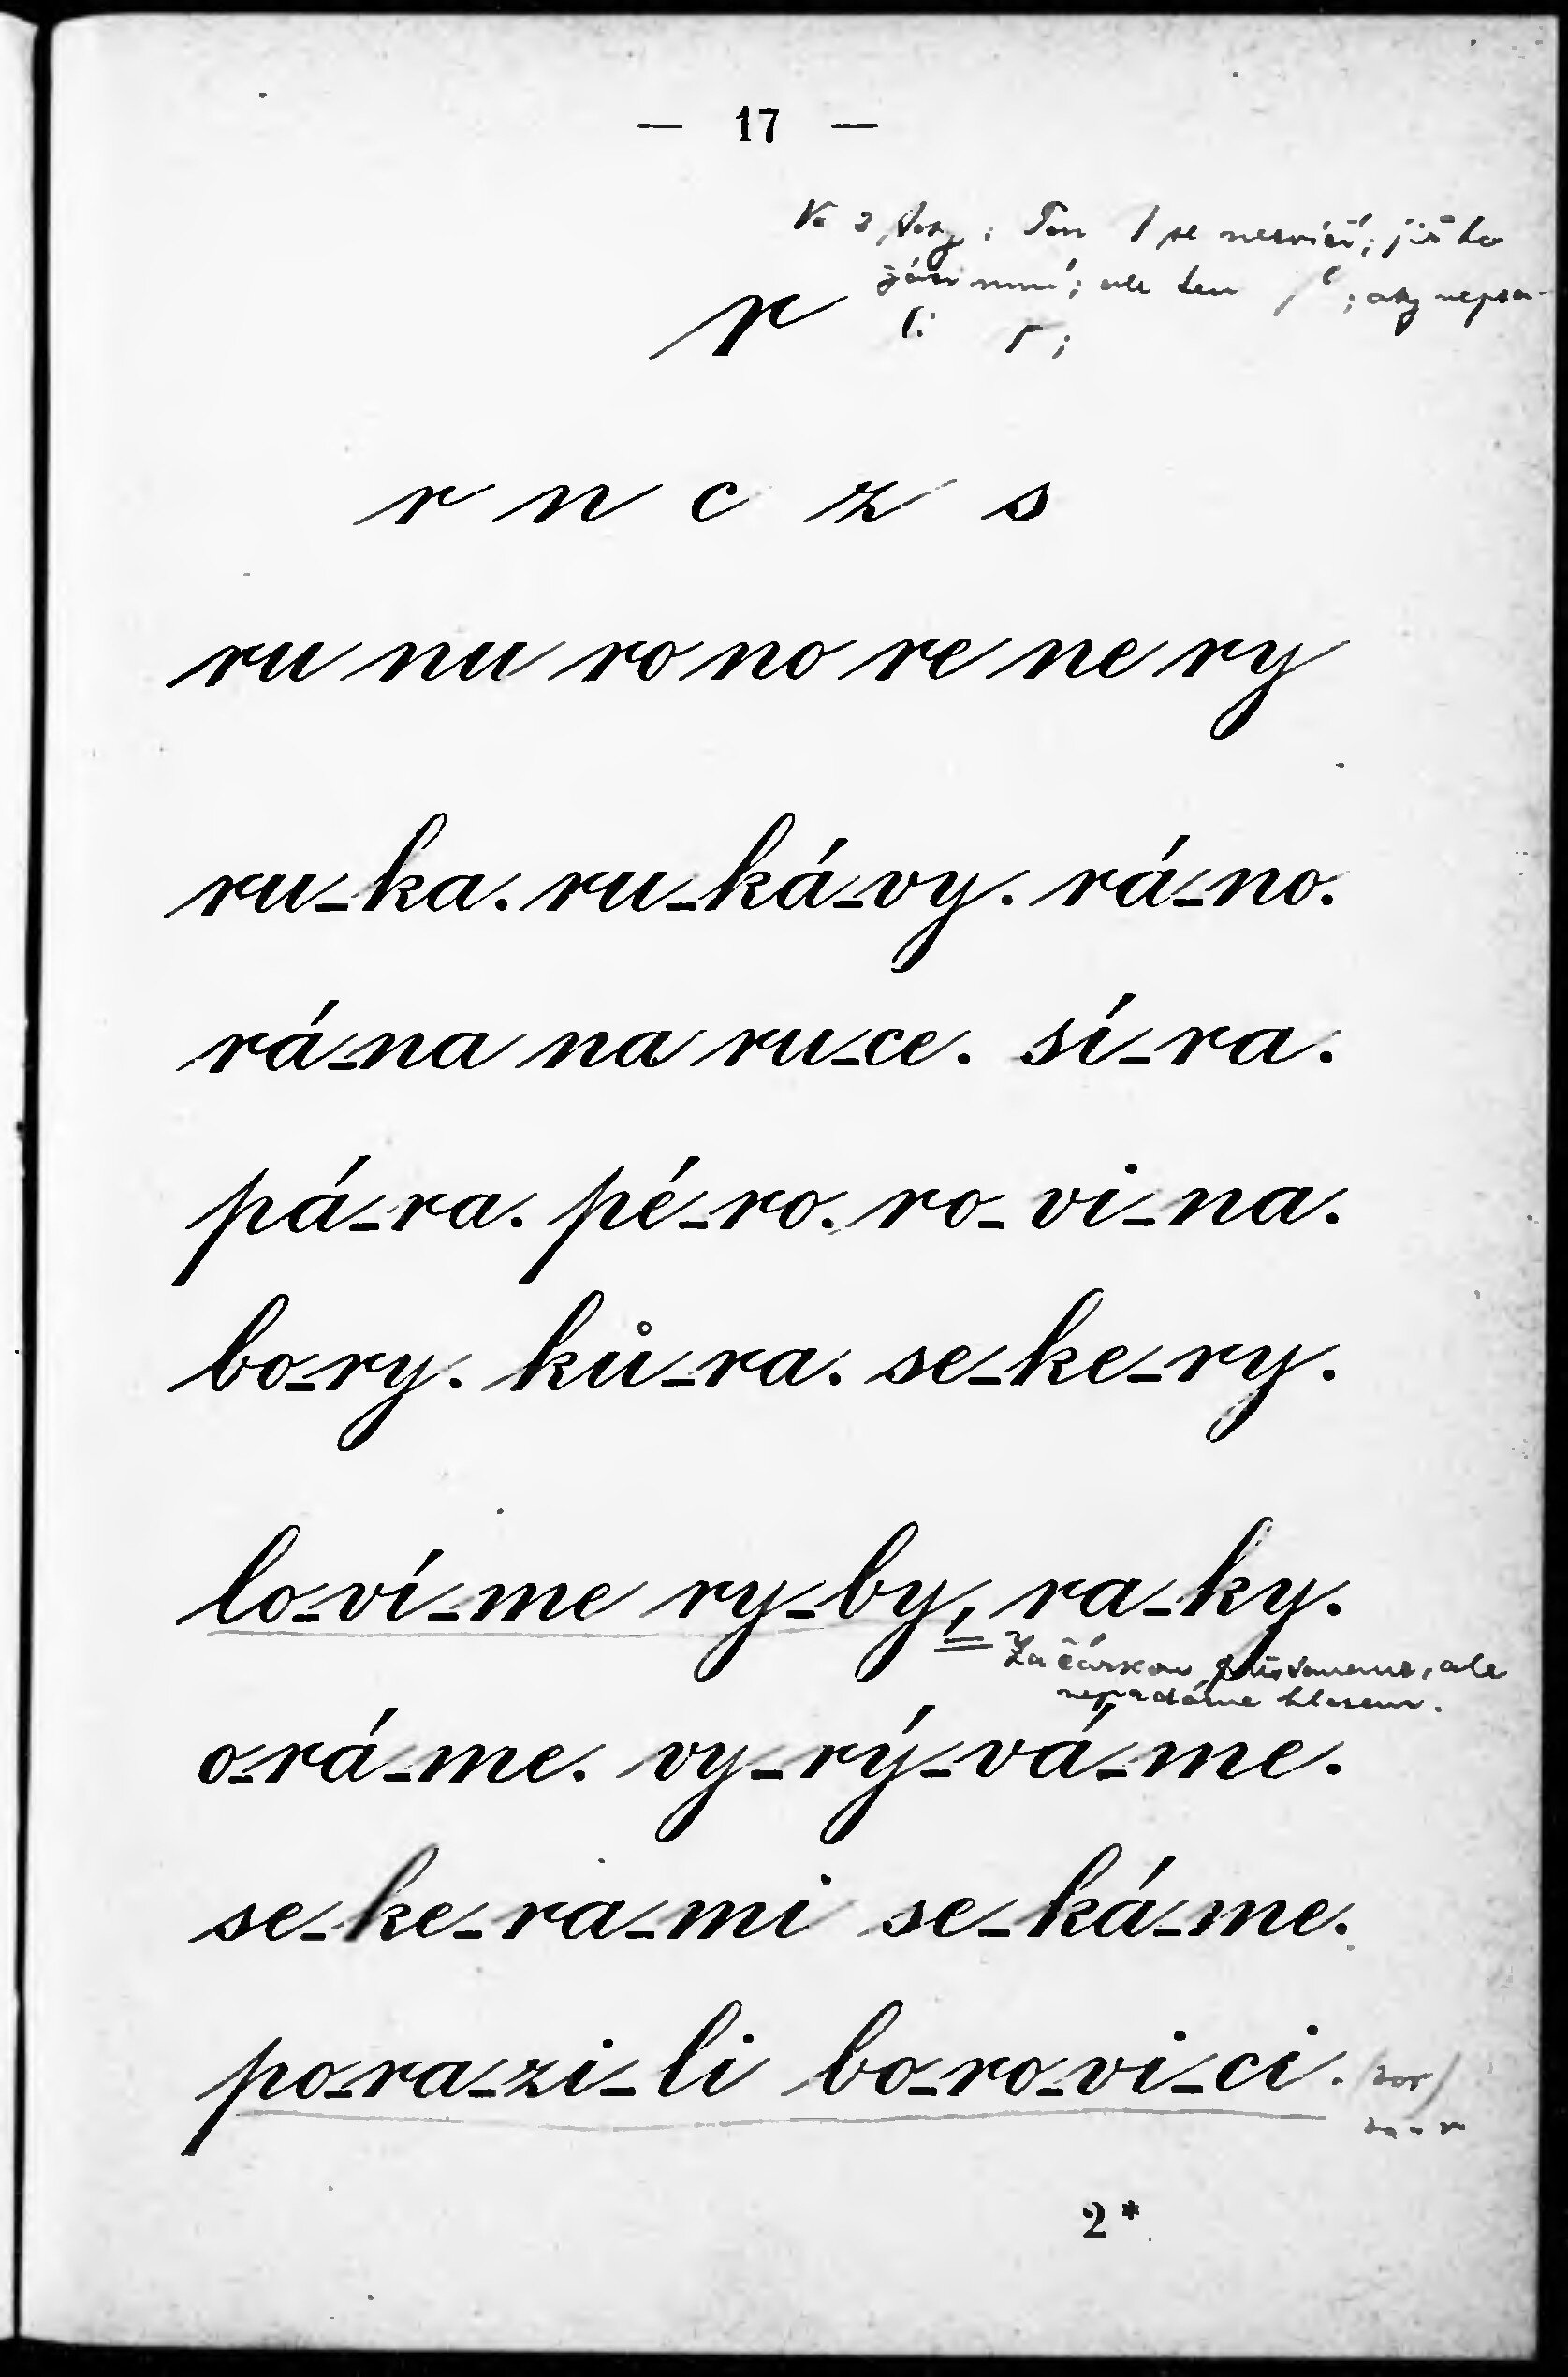 — 17 —
Ten se
ale ten
r
r n c z s
ru nu ro no re ne ry
ru-ka. ru-ká-vy. rá-no.
rá-na na ru-ce. sí-ra.
pá-ra. pé-ro. ro-vi-na.
bo-ry. ků-ra. se-ke-ry.
lo-ví-me ry-by, ra-ky.
Za čárkou, ale
nepadáme hlasem.
o-rá-me. vy-rý-vá-me.
se-ke-ra-mi se-ká-me.
po-ra-zi-li bo-ro-vi-ci.
2*